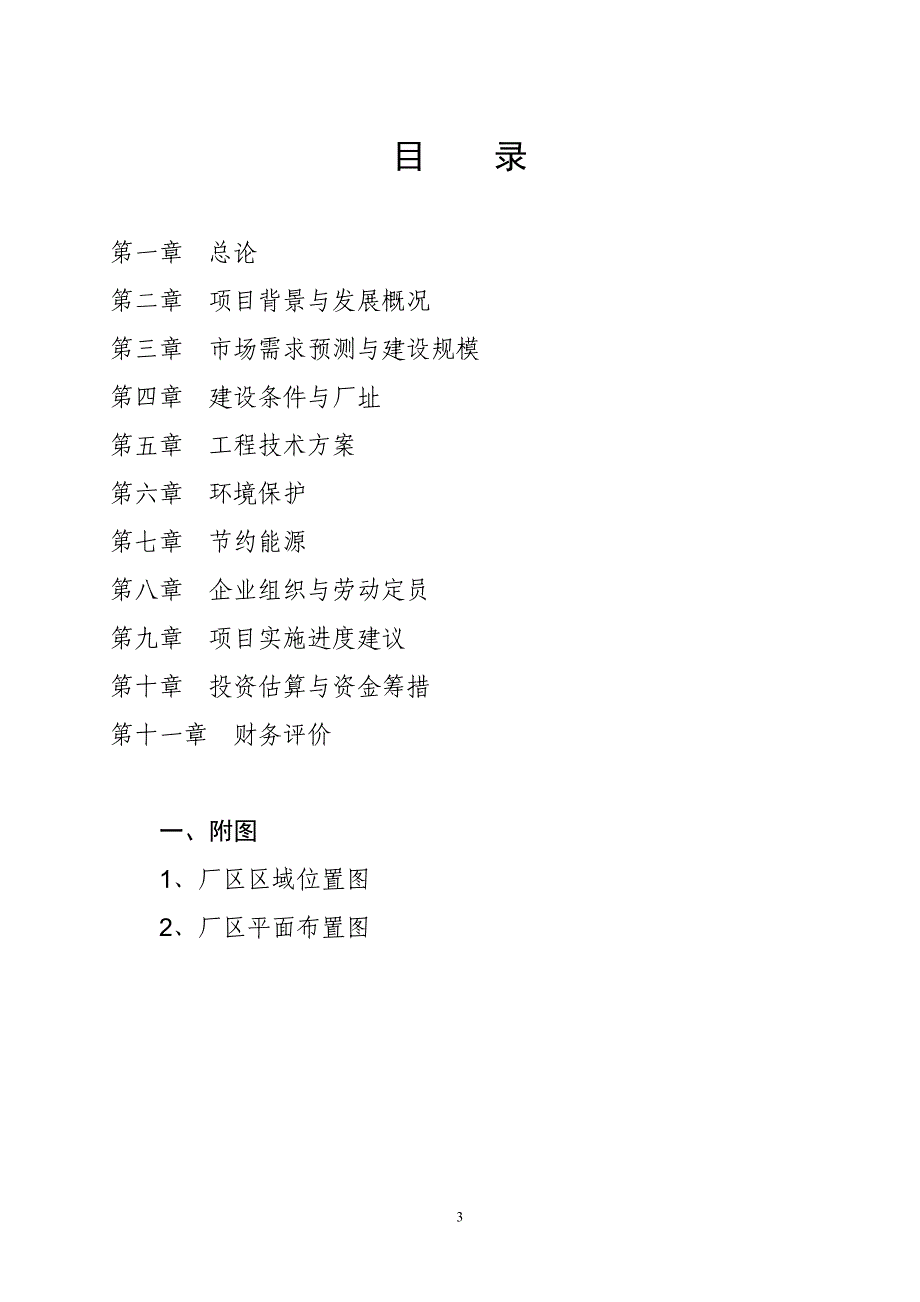 目　　录
第一章　总论
第二章　项目背景与发展概况
第三章　市场需求预测与建设规模
第四章　建设条件与厂址
第五章　工程技术方案
第六章　环境保护
第七章　节约能源
第八章　企业组织与劳动定员
第九章　项目实施进度建议
第十章　投资估算与资金筹措
第十一章　财务评价
一、附图
1、厂区区域位置图
2、厂区平面布置图
3